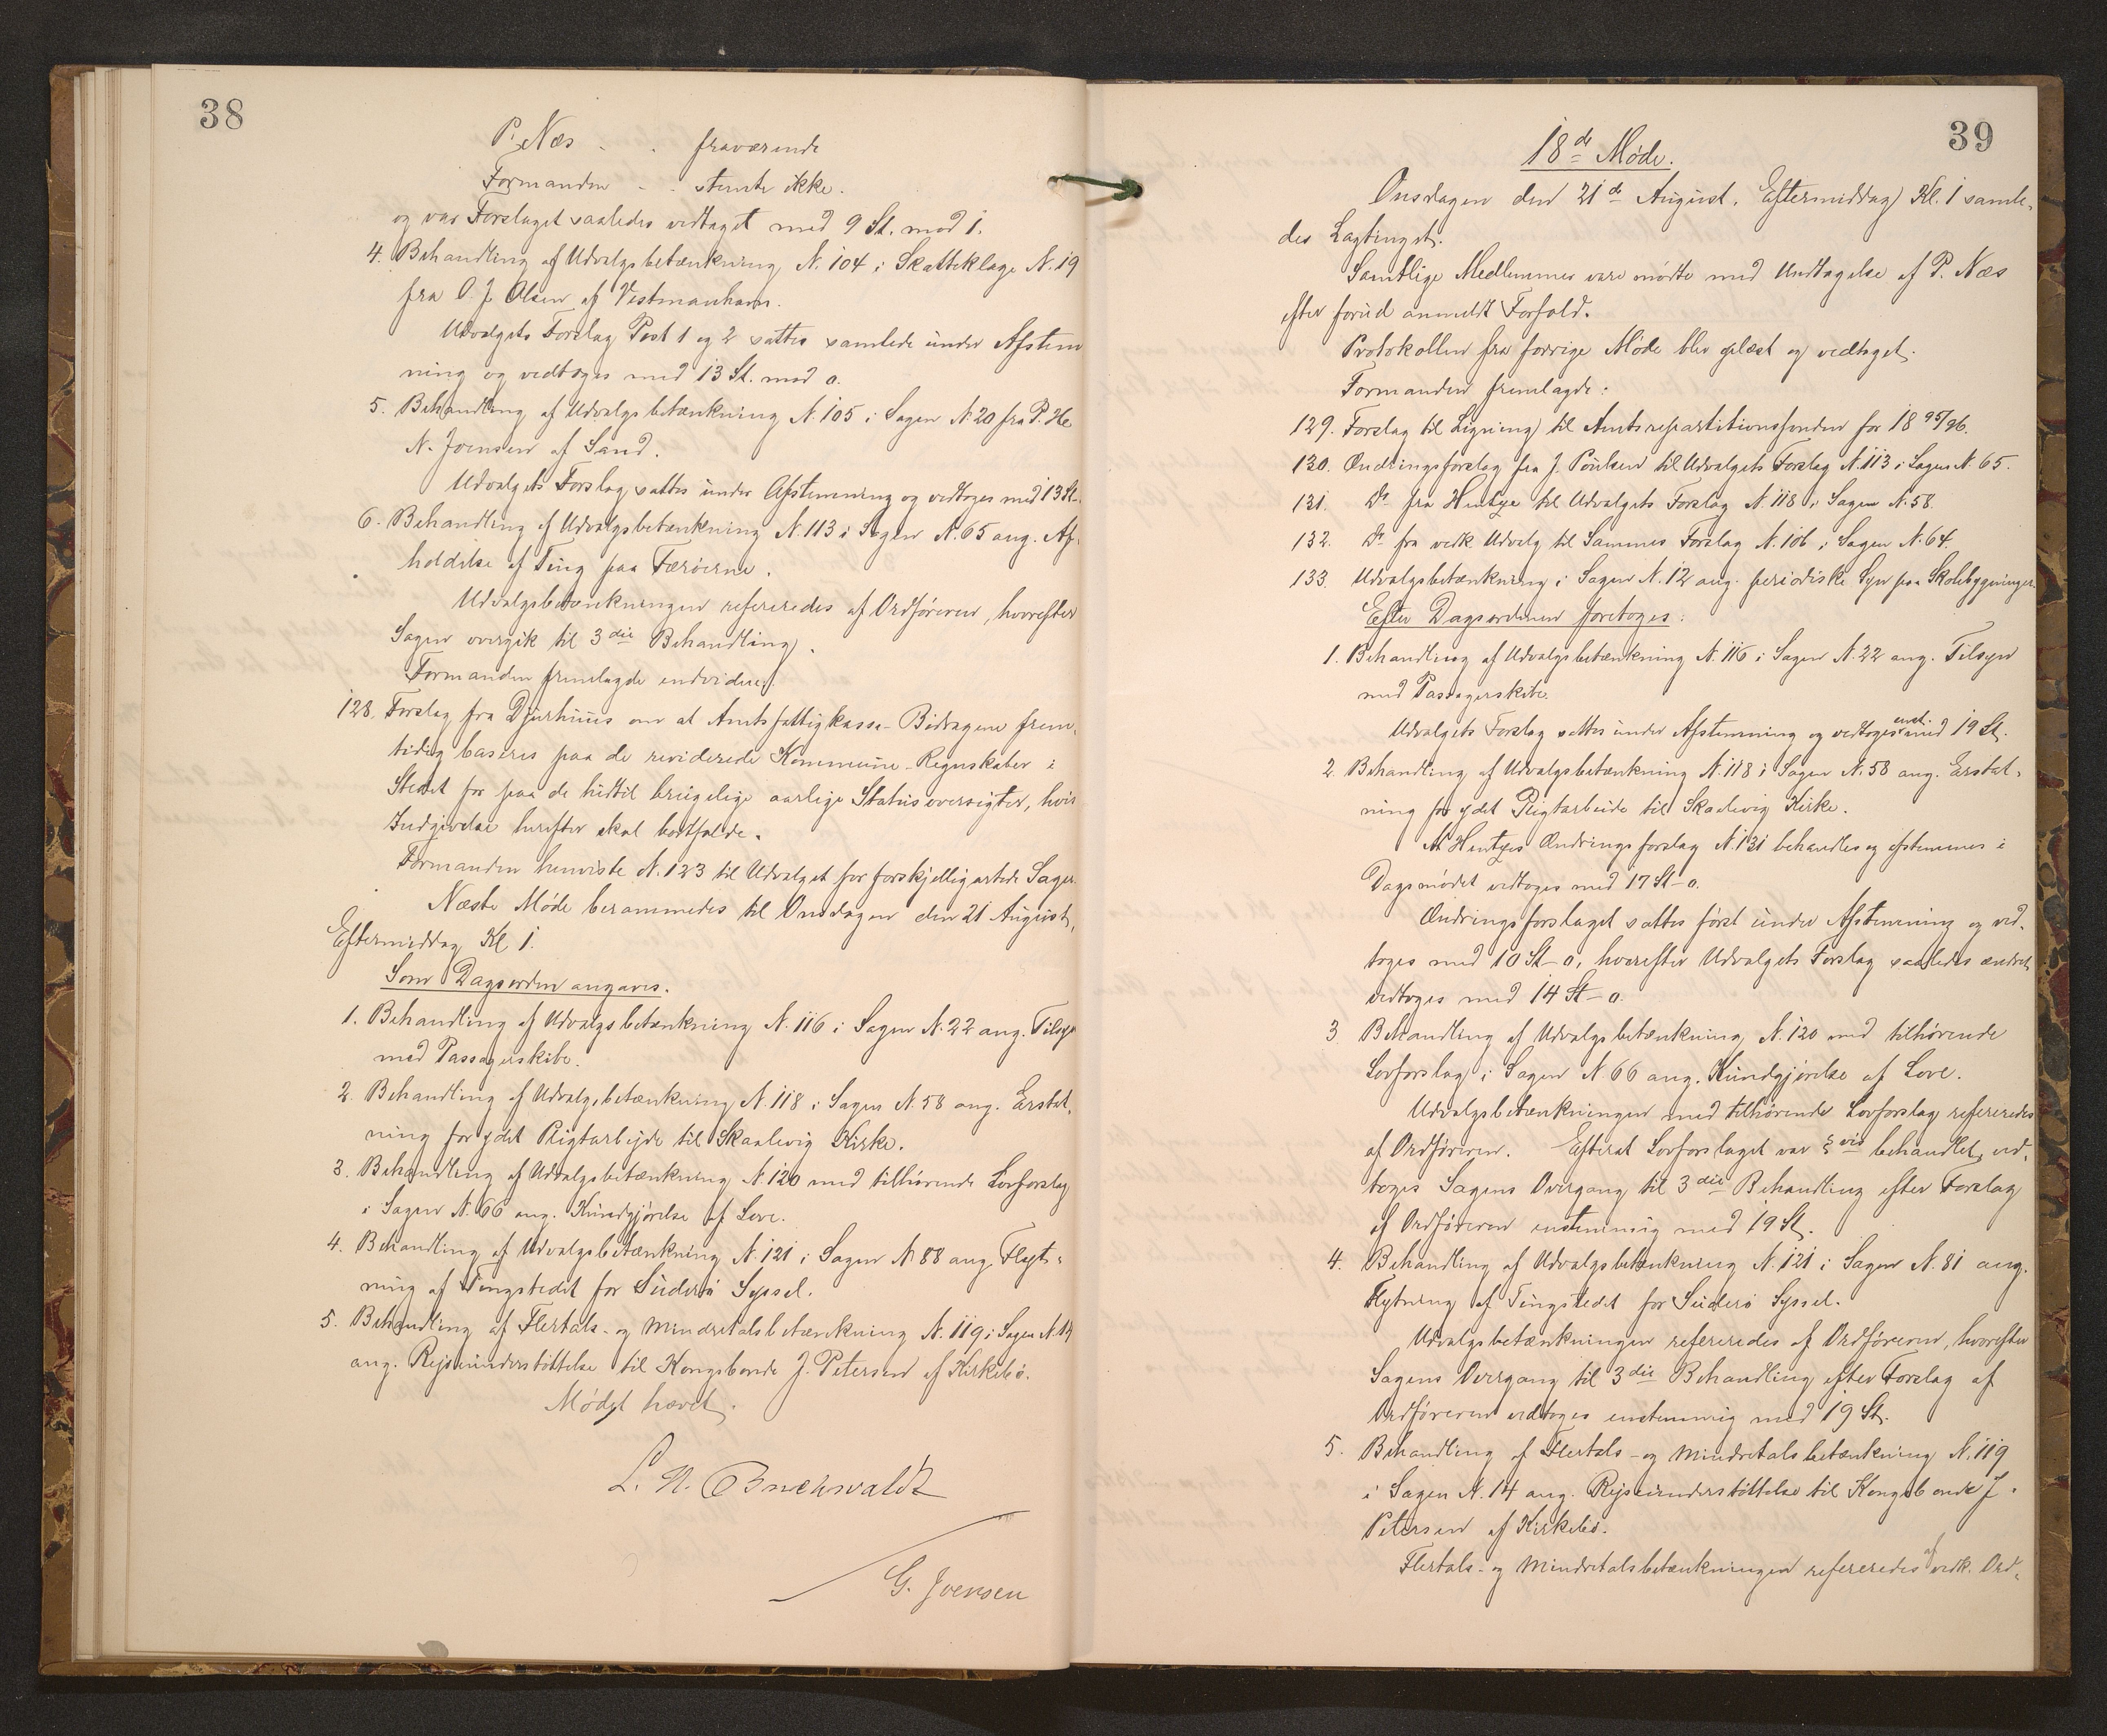 38
P. Næs - - fraværende
Formanden - - stemte ikke.
og var Forslaget saaledes vedtaget med 9 St. mod 1.
4. Behandling af Udvalgsbetænkning N. 104 i Skatteklage N. 19
fra O. J. Olsen af Vestmanhavn.
Udvalgets Forslag Post 1 og 2 sattes samlede under Afstem
ning og vedtoges med 13 St. mod 0.
5. Behandling af Udvalgsbetænkning N. 105 i Sagen N. 20 fra P. He
N. Joensen af Sand.
Udvalgets Forslag sattes under Afstemning og vedtoges med 13 St.
6. Behandling af Udvalgsbetænkning N. 113 i Sagen N. 65 ang. Af-
holdelse af Ting paa Færöerne.
Udvalgsbetænkningen refereredes af Ordföreren, hvorefter
Sagen overgik til 3die Behandling.
Formanden fremlagde endvidere:
128. Forslag fra Djurhuus om at Amtsfattigkasse-Bidragene frem-
tidig baseres paa de reviderede Kommune-Regnskaber i
Stedet for paa de hidtil brugelige aarlige Statusoversigter, hvis
Indgivelse herefter skal bortfalde.
Formanden henviste N. 123 til Udvalget for forskjelligartede Sager.
Næste Möde berammedes til Onsdagen den 21 August,
Eftermiddag Kl. 1.
Som Dagsorden angaves.
1. Behandling af Udvalgsbetænkning N. 116 i Sagen N. 22 ang. Tilsyn
med Passagerskibe.
2. Behandling af Udvalgsbetænkning N. 118 i Sagen N. 58 ang. Erstat-
ning for ydet Pligtarbejde til Skaalevig Kirke.
3. Behandling af Udvalgsbetænkning N. 120 med tilhörende Lovforslag
i Sagen N. 66 ang. Kundgjörelse af Love.
4. Behandling af Udvalgsbetænkning N. 121 i Sagen N. 88 ang. Flyt-
ning af Tingstedet for Suderö Syssel.
5. Behandling af Flertals- og Mindretalsbetænkning N. 119 i Sagen N. 14
ang. Rejseunderstöttelse til Kongsbonde J. Petersen af Kirkebö.
Mödet hævet.
L. N. Buchwaldt
G. Joensen
39
18de Möde.
Onsdagen den 21de August, Eftermiddag Kl. 1 samle-
des Lagtinget.
Samtlige Medlemmer vare mödte med Undtagelse af P. Næs
efter forud anmeldt Forfald.
Protokollen fra forrige Möde blev oplæst og vedtaget.
Formanden fremlagde:
129. Forslag til Ligning til Amtsrepartitionsfonden for 1895/96.
130. Ændringsforslag fra J. Poulsen til Udvalgets Forslag N. 113 i Sagen N. 65.
131. Do fra Hentze til Udvalgets Forslag N. 118 i Sagen N. 58.
132. Do fra vedk. Udvalg til Sammes Forslag N. 106 i Sagen N. 64.
133. Udvalgsbetænkning i Sagen N. 12 ang. periodiske Syn paa Skolebygninger.
Efter Dagsordenen foretoges:
1. Behandling af Udvalgsbetænkning N. 116 i Sagen N. 22 ang. Tilsyn
med Passagerskibe.
Udvalgets Forslag sattes under Afstemning og vedtoges enst. med 19 St.
2. Behandling af Udvalgsbetænkning N. 118 i Sagen N. 58 ang. Erstat-
ning for ydet Pligtarbeide til Skaalevig Kirke.
At Hentzes Ændringsforslag N. 131 behandles og afstemmes i
Dagsmödet vedtoges med 17 St - 0.
Ændringsforslaget sattes först under Afstemning og ved-
toges med 10 St - 0, hvorefter Udvalgets Forslag saaledes ændret
vedtoges med 14 St - 0.
3 Behandling af Udvalgsbetænkning N. 120 med tilhörende
Lovforslag i Sagen N 66 ang. Kundgjörelse af Love.
Udvalgsbetænkningen med tilhörende Lovforslag refereredes
af Ordföreren. Efterat Lovforslaget var §vis behandlet, ved-
toges Sagens Overgang til 3die Behandling efter Forslag
af Ordföreren enstemmig med 19 St.
4. Behandling af Udvalgsbetænkning N. 121 i Sagen N. 81 ang.
Flytning af Tingstedet for Suderö Syssel.
Udvalgsbetænkningen refereredes af Ordföreren, hvorefter
Sagens Overgang til 3die Behandling efter Forslag af
Ordföreren vedtoges enstemmig med 19 St.
5. Behandling af Flertals- og Mindretalsbetænkning N. 119
i Sagen N. 14 ang. Rejseunderstöttelse til Kongsbonde J.
Petersen af Kirkebö.
Flertals- og Mindretalsbetænkningen refereredes af vedk. Ord-